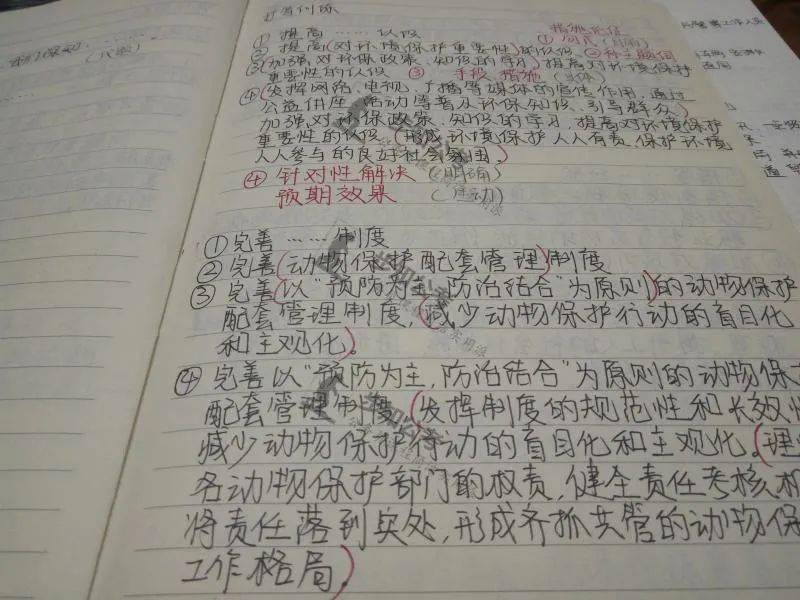 扩写训练
① 提高……认识
措施论证
② 提高(对环境保护重要性)的认识
③(加强对环保政策、知识的学习)提高对环境保护
重要性的认识 ③ 手段、措施
④(发挥网络、电视、广播等媒体的宣传作用,通过
公益讲座、活动等普及环保知识、引导群众)
加强对环保政策、知识的学习,提高对环境保护
重要性的认识(形成环境保护人人有责,保护环境
人人参与的良好社会氛围。)
④ 针对性解决(明确)
预期效果
① 完善……制度
② 完善(动物保护配套管理)制度
③ 完善(以“预防为主,防治结合”为原则)的动物保护
配套管理制度,(减少动物保护行动的盲目化
和主观化。)
④ 完善以“预防为主,防治结合”为原则的动物保
配套管理制度(发挥制度的规范性和长效
减少动物保护行动的盲目化和主观化。(理
各动物保护部门的权责,健全责任考核机
将责任落到实处,形成齐抓共管的动物保
工作格局)